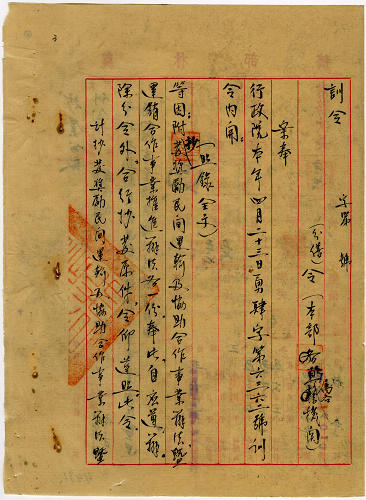 訓令
字第 號
(分僃)令(本部各附屬機關)
案奉
行政院本年四月二十三日勇肆字第六三六一號訓
令內開:
(照錄全文)
等因;附抄發獎勵民間運輸及協助合作事業辦法暨
運銷合作事業推進辦法各一份奉此,自應遵辦,
除分令外,合行抄發原件令仰遵照此令
計抄發獎勵民間運輸及協助合作事業辦法暨